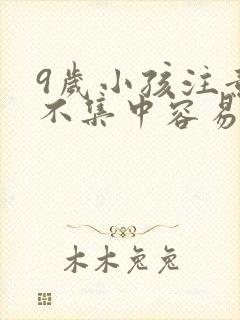 9歲小孩注
不集中容易
木木兔兔